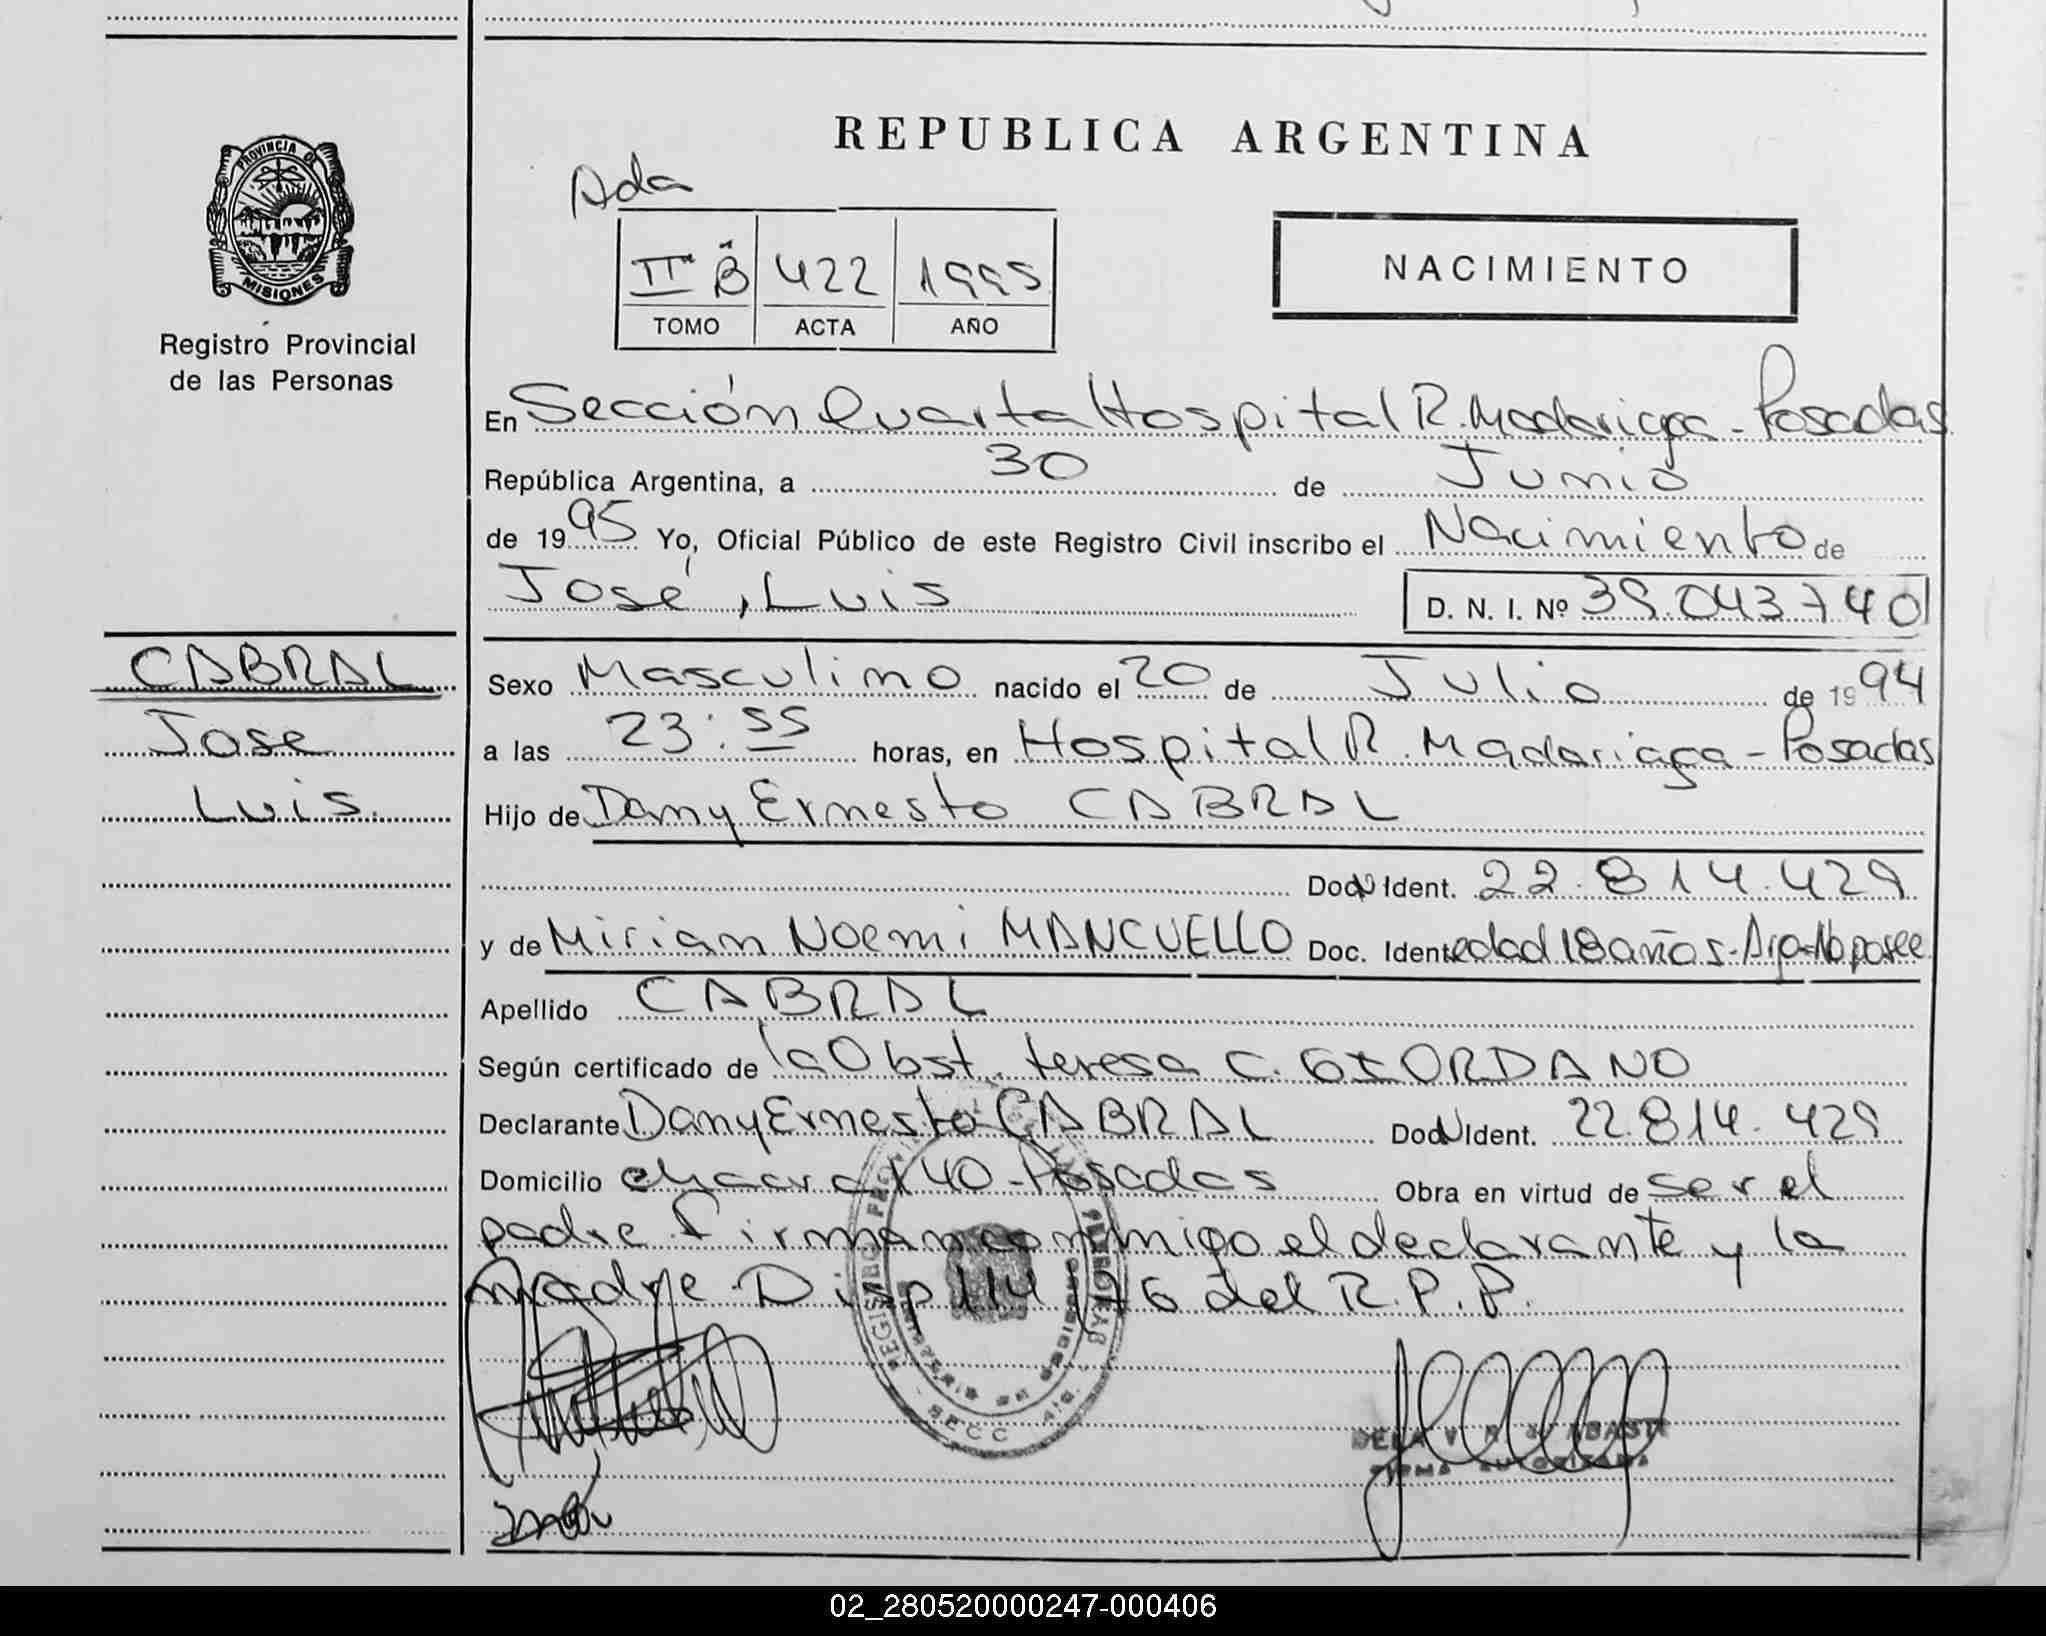 REPUBLICA ARGENTINA
PROVINCIA DE
MISIONES
Registro Provincial
de las Personas
Ada
IIº B 422 1995
TOMO ACTA AÑO
NACIMIENTO
En Sección Cuarta Hospital R. Madariaga - Posadas
República Argentina, a 30 de Junio
de 1995 Yo, Oficial Público de este Registro Civil inscribo el Nacimiento de
José, Luis D. N. I. Nº 39.043.740
CABRAL
Jose
Luis.
Sexo Masculino nacido el 20 de Julio de 1994
a las 23:55 horas, en Hospital R. Madariaga - Posadas
Hijo de Dany Ernesto CABRAL
Doc. Ident. 22.814.429
y de Miriam Noemi MANCUELLO Doc. Ident. edad 18 años - Arg - No posee
Apellido CABRAL
Según certificado de la Obst. teresa C. GIORDANO
Declarante Dany Ernesto CABRAL Doc. Ident. 22.814.429
Domicilio chacra 140 - Posadas Obra en virtud de ser el
padre firman conmigo el declarante y la
Madre. Disp 114/76 del R.P.P.
SECC 4ta.
FIRMA AUTORIZADA
02_280520000247-000406